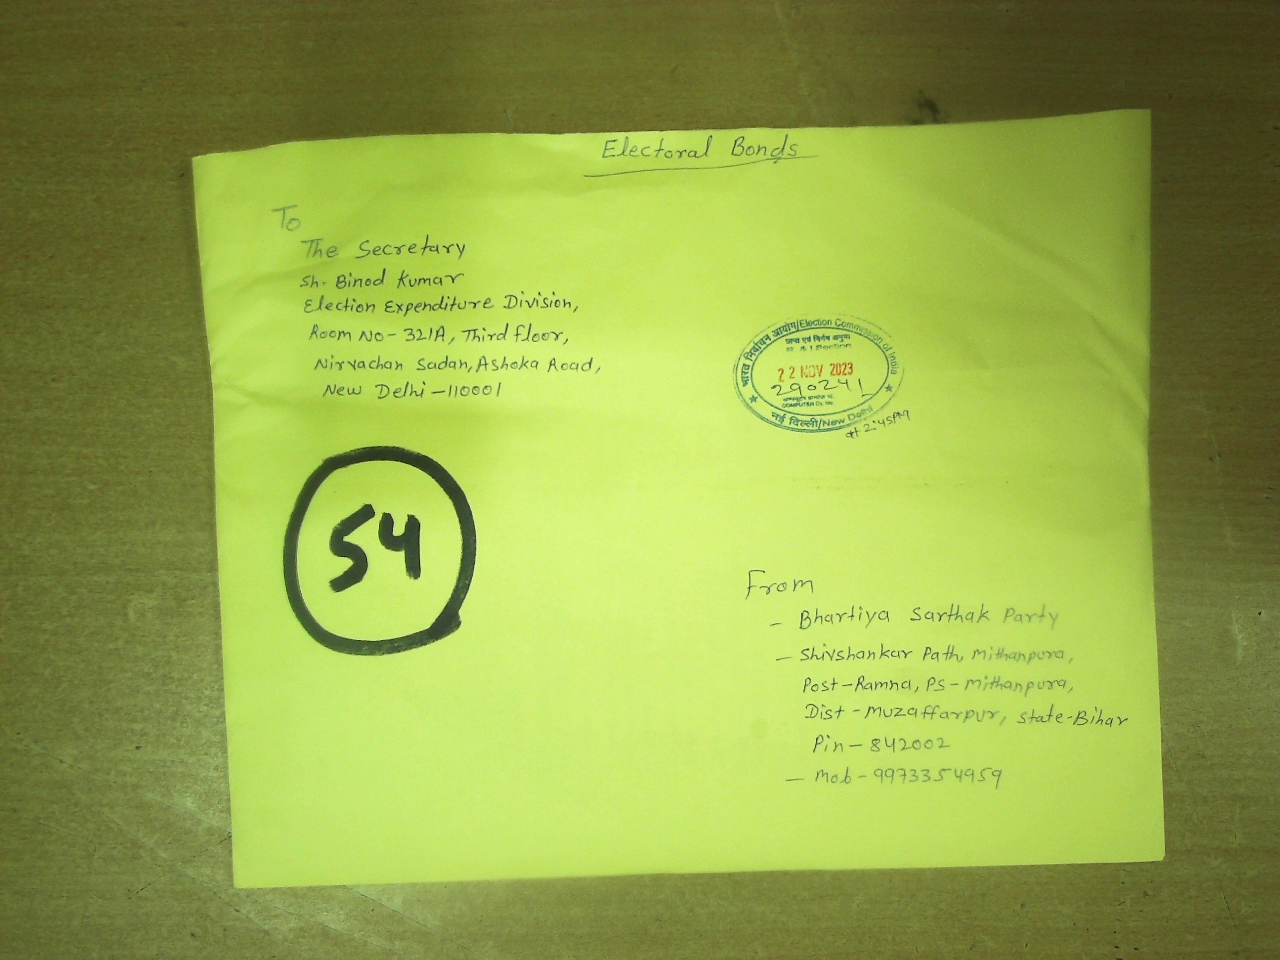 Electoral Bonds
To
The Secretary
Sh. Binod Kumar
Election Expenditure Division,
Room No- 321A, Third floor,
Nirvachan Sadan, Ashoka Road,
New Delhi -110001
भारत निर्वाचन आयोग/Election Commission of India
R & I Section
22 NOV 2023
290241
COMPUTER Dy. No.
नई दिल्ली/New Delhi
at 2:45PM
54
From
- Bhartiya Sarthak Party
- Shivshankar Path, Mithanpura,
Post-Ramna, PS-Mithanpura,
Dist-Muzaffarpur, State-Bihar
Pin-842002
- Mob-9973354959